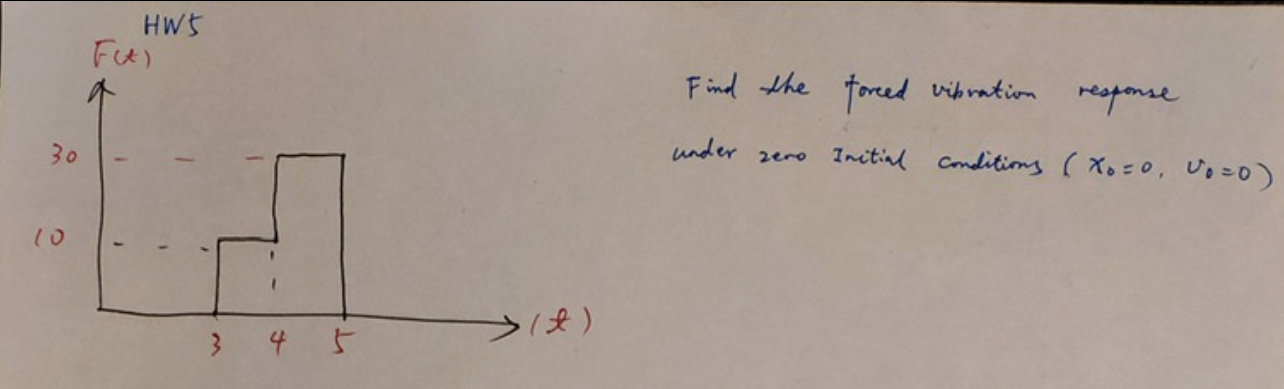 HW5
F(t)
30
10
3 4 5
(t)
Find the forced vibration response
under zero Initial conditions ( x₀=0, v₀=0)